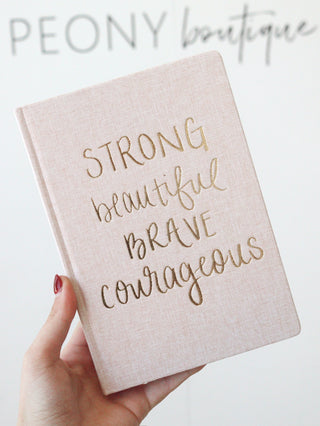 PEONY boutique
STRONG
beautiful
BRAVE
courageous